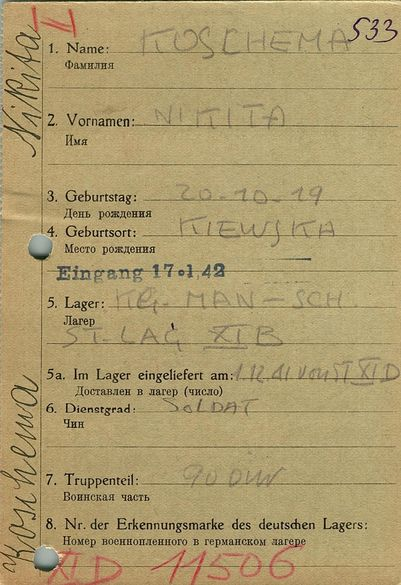 II
533
1. Name: KOSCHEMA
Фамилия
2. Vornamen: NIKITA
Имя
3. Geburtstag: 20-10-19
День рождения
4. Geburtsort: KIEWSKA
Место рождения
Eingang 17.1.42
5. Lager: KG-MAN-SCH.
Лагер
ST-LAG XIB
5a. Im Lager eingeliefert am: 1.12.41 von ST XID
Доставлен в лагер (число)
6. Dienstgrad: SOLDAT
Чин
7. Truppenteil: 90
Воинская часть
8. Nr. der Erkennungsmarke des deutschen Lagers:
Номер военнопленного в германском лагере
XID 11506
Koschema Nikita